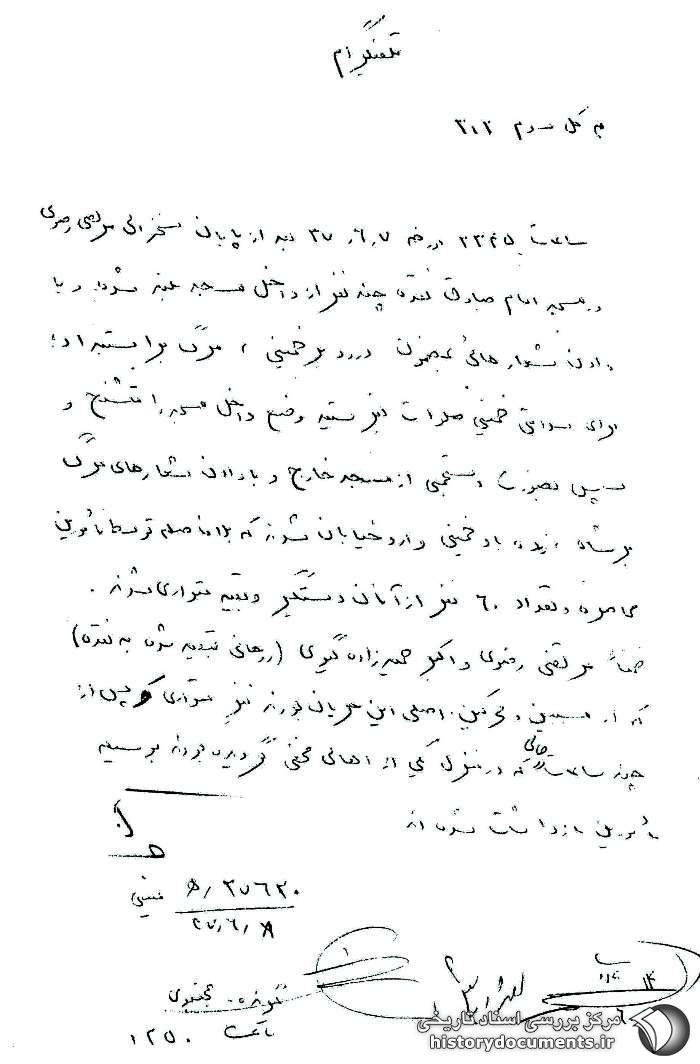 تلفنگرام
به کل سوم ۳۱۲
ساعت ۲۲۴۵ روز ۳۷٫۶٫۷ بعد از پایان سخنرانی مرتضی رضوی
در مسجد امام صادق نقده چند نفر از داخل مسجد بلند شده و با
دادن شعارهائی بمضمون درود بر خمینی ، مرگ بر استبداد ؛
برای سلامتی خمینی صلوات بفرستید وضع داخل مسجد را متشنج و
سپس بصورت دستجمعی از مسجد خارج و با دادن شعارهای مرگ
بر شاه ، زنده باد خمینی وارد خیابان شدند که بلافاصله توسط مأمورین
محاصره و تعداد ۶۰ نفر از آنان دستگیر و بقیه متواری شدند .
ضمناً مرتضی رضوی و اکبر حمیدزاده گیوی (روحانی تبعید شده به نقده)
که از مسببین و محرکین اصلی این جریان بودند نیز متواری که پس از
چند ساعت در حالی که در منزل یکی از اهالی مخفی گردیده بودند بوسیله
مأمورین بازداشت شده اند
۲۷۶۲۰ / ھ
۳۷٫۶٫۸
گوینده -
ساعت ۱۲۵۰
مرکز بررسی اسناد تاریخی
historydocuments.ir